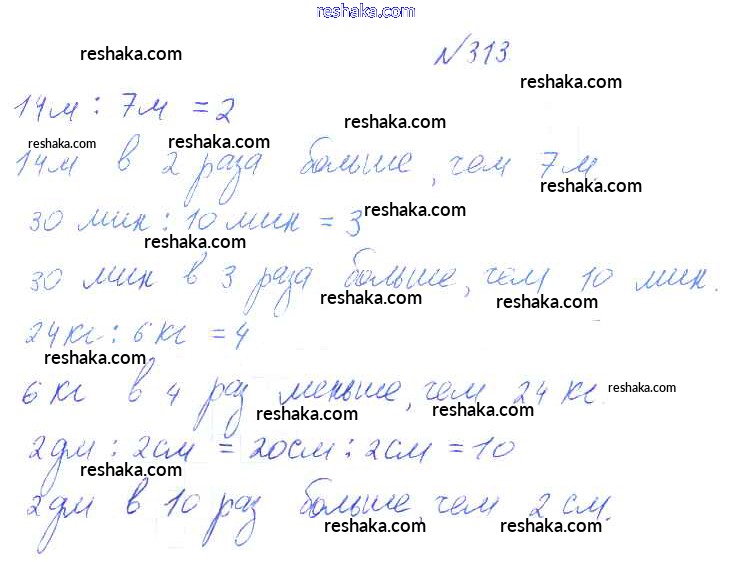 reshaka.com
reshaka.com
№313
reshaka.com
14м : 7м = 2
reshaka.com
reshaka.com
reshaka.com
14м в 2 раза больше, чем 7м.
reshaka.com
30 мин : 10 мин = 3
reshaka.com
reshaka.com
30 мин в 3 раза больше, чем 10 мин.
reshaka.com
reshaka.com
24кг : 6кг = 4
reshaka.com
6кг в 4 раз меньше, чем 24 кг.
reshaka.com
reshaka.com
reshaka.com
2дм : 2см = 20см : 2см = 10
reshaka.com
2дм в 10 раз больше, чем 2 см.
reshaka.com
reshaka.com